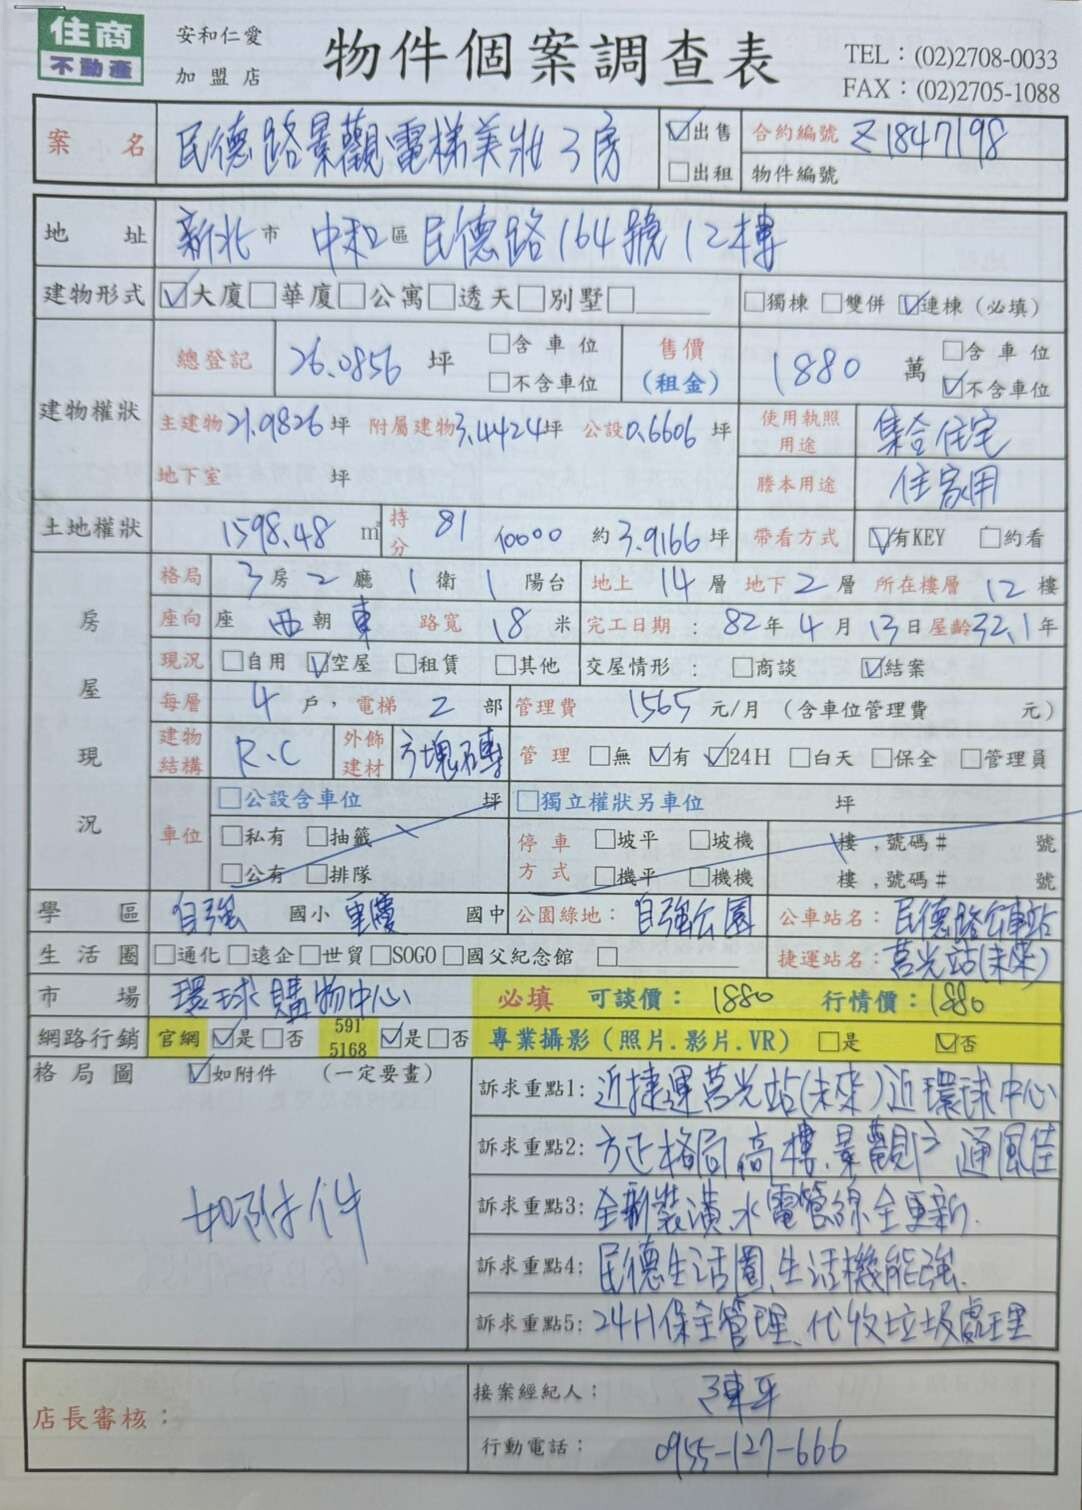 住商
不動產
安和仁愛
加盟店
物件個案調查表
TEL：(02)2708-0033
FAX：(02)2705-1088
案名 民德路景觀電梯美妝3房 ☑出售 合約編號 Z1847198
□出租 物件編號
地址 新北市 中和區 民德路164號12樓
建物形式 ☑大廈□華廈□公寓□透天□別墅□ □獨棟 □雙併 ☑連棟（必填）
建物權狀 總登記 26.0856 坪 □含車位 □不含車位 售價(租金) 1880 萬 □含車位 ☑不含車位
主建物21.9826坪 附屬建物3.4424坪 公設0.6606坪 使用執照用途 集合住宅
地下室 坪 謄本用途 住家用
土地權狀 1598.48 ㎡ 持分 81 10000 約3.9166坪 帶看方式 ☑有KEY □約看
房屋現況
格局 3房2廳1衛1陽台 地上14層 地下2層 所在樓層12樓
座向 座西朝東 路寬18米 完工日期：82年4月13日 屋齡32.1年
現況 □自用 ☑空屋 □租賃 □其他 交屋情形：□商談 ☑結案
每層 4戶，電梯2部 管理費 1565 元/月（含車位管理費 元）
建物結構 R.C 外飾建材 方塊磚 管理 □無 ☑有 ☑24H □白天 □保全 □管理員
車位 □公設含車位 坪 □獨立權狀另車位 坪
□私有 □抽籤 停車方式 □坡平 □坡機 樓,號碼# 號
□公有 □排隊 □機平 □機機 樓,號碼# 號
學區 自強 國小 重慶 國中 公園綠地：自強公園 公車站名：民德路公車站
生活圈 □通化□遠企□世貿□SOGO□國父紀念館 □ 捷運站名：莒光站(未來)
市場 環球購物中心 必填 可談價：1880 行情價：1880
網路行銷 官網 ☑是□否 591 5168 ☑是□否 專業攝影（照片.影片.VR） □是 ☑否
格局圖 ☑如附件 （一定要畫）
如附件
訴求重點1: 近捷運莒光站(未來)近環球中心
訴求重點2: 方正格局、高樓、景觀戶 通風佳
訴求重點3: 全新裝潢、水電管線全更新.
訴求重點4: 民德生活圈、生活機能強.
訴求重點5: 24H保全管理、代收垃圾處理
店長審核：
接案經紀人： 陳平
行動電話： 0955-127-666